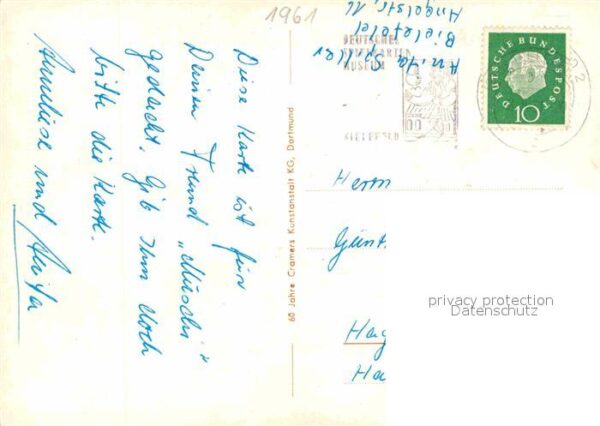 1961
Diese Karte ist für
Deinen Freund „Muschi"
gedacht. Gib Ihm doch
bitte die Karte.
Anneliese und Anita
60 Jahre Cramers Kunstanstalt KG, Dortmund
Anita
Bielefeld
Angelstr. 16
DEUTSCHES
SPIELKARTEN
MUSEUM
BIELEFELD
DEUTSCHE BUNDESPOST
10
Herrn
Günt
Hag
Ha
privacy protection
Datenschutz